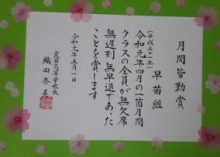 月間皆勤賞
早苗組
(平成三十一年)
令和元年四月の一箇月間
クラスの全員が無欠席
無遅刻 無早退であった
ことを賞します
令和元年五月一日